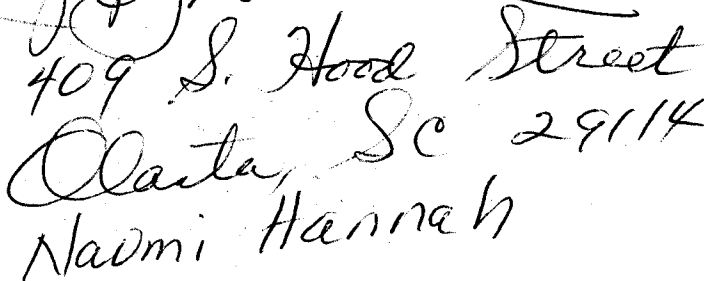 409 S. Hood Street
Olanta, SC 29114
Naomi Hannah